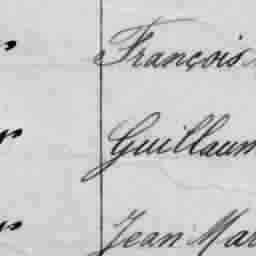 François
Guillaum
Jean Mar